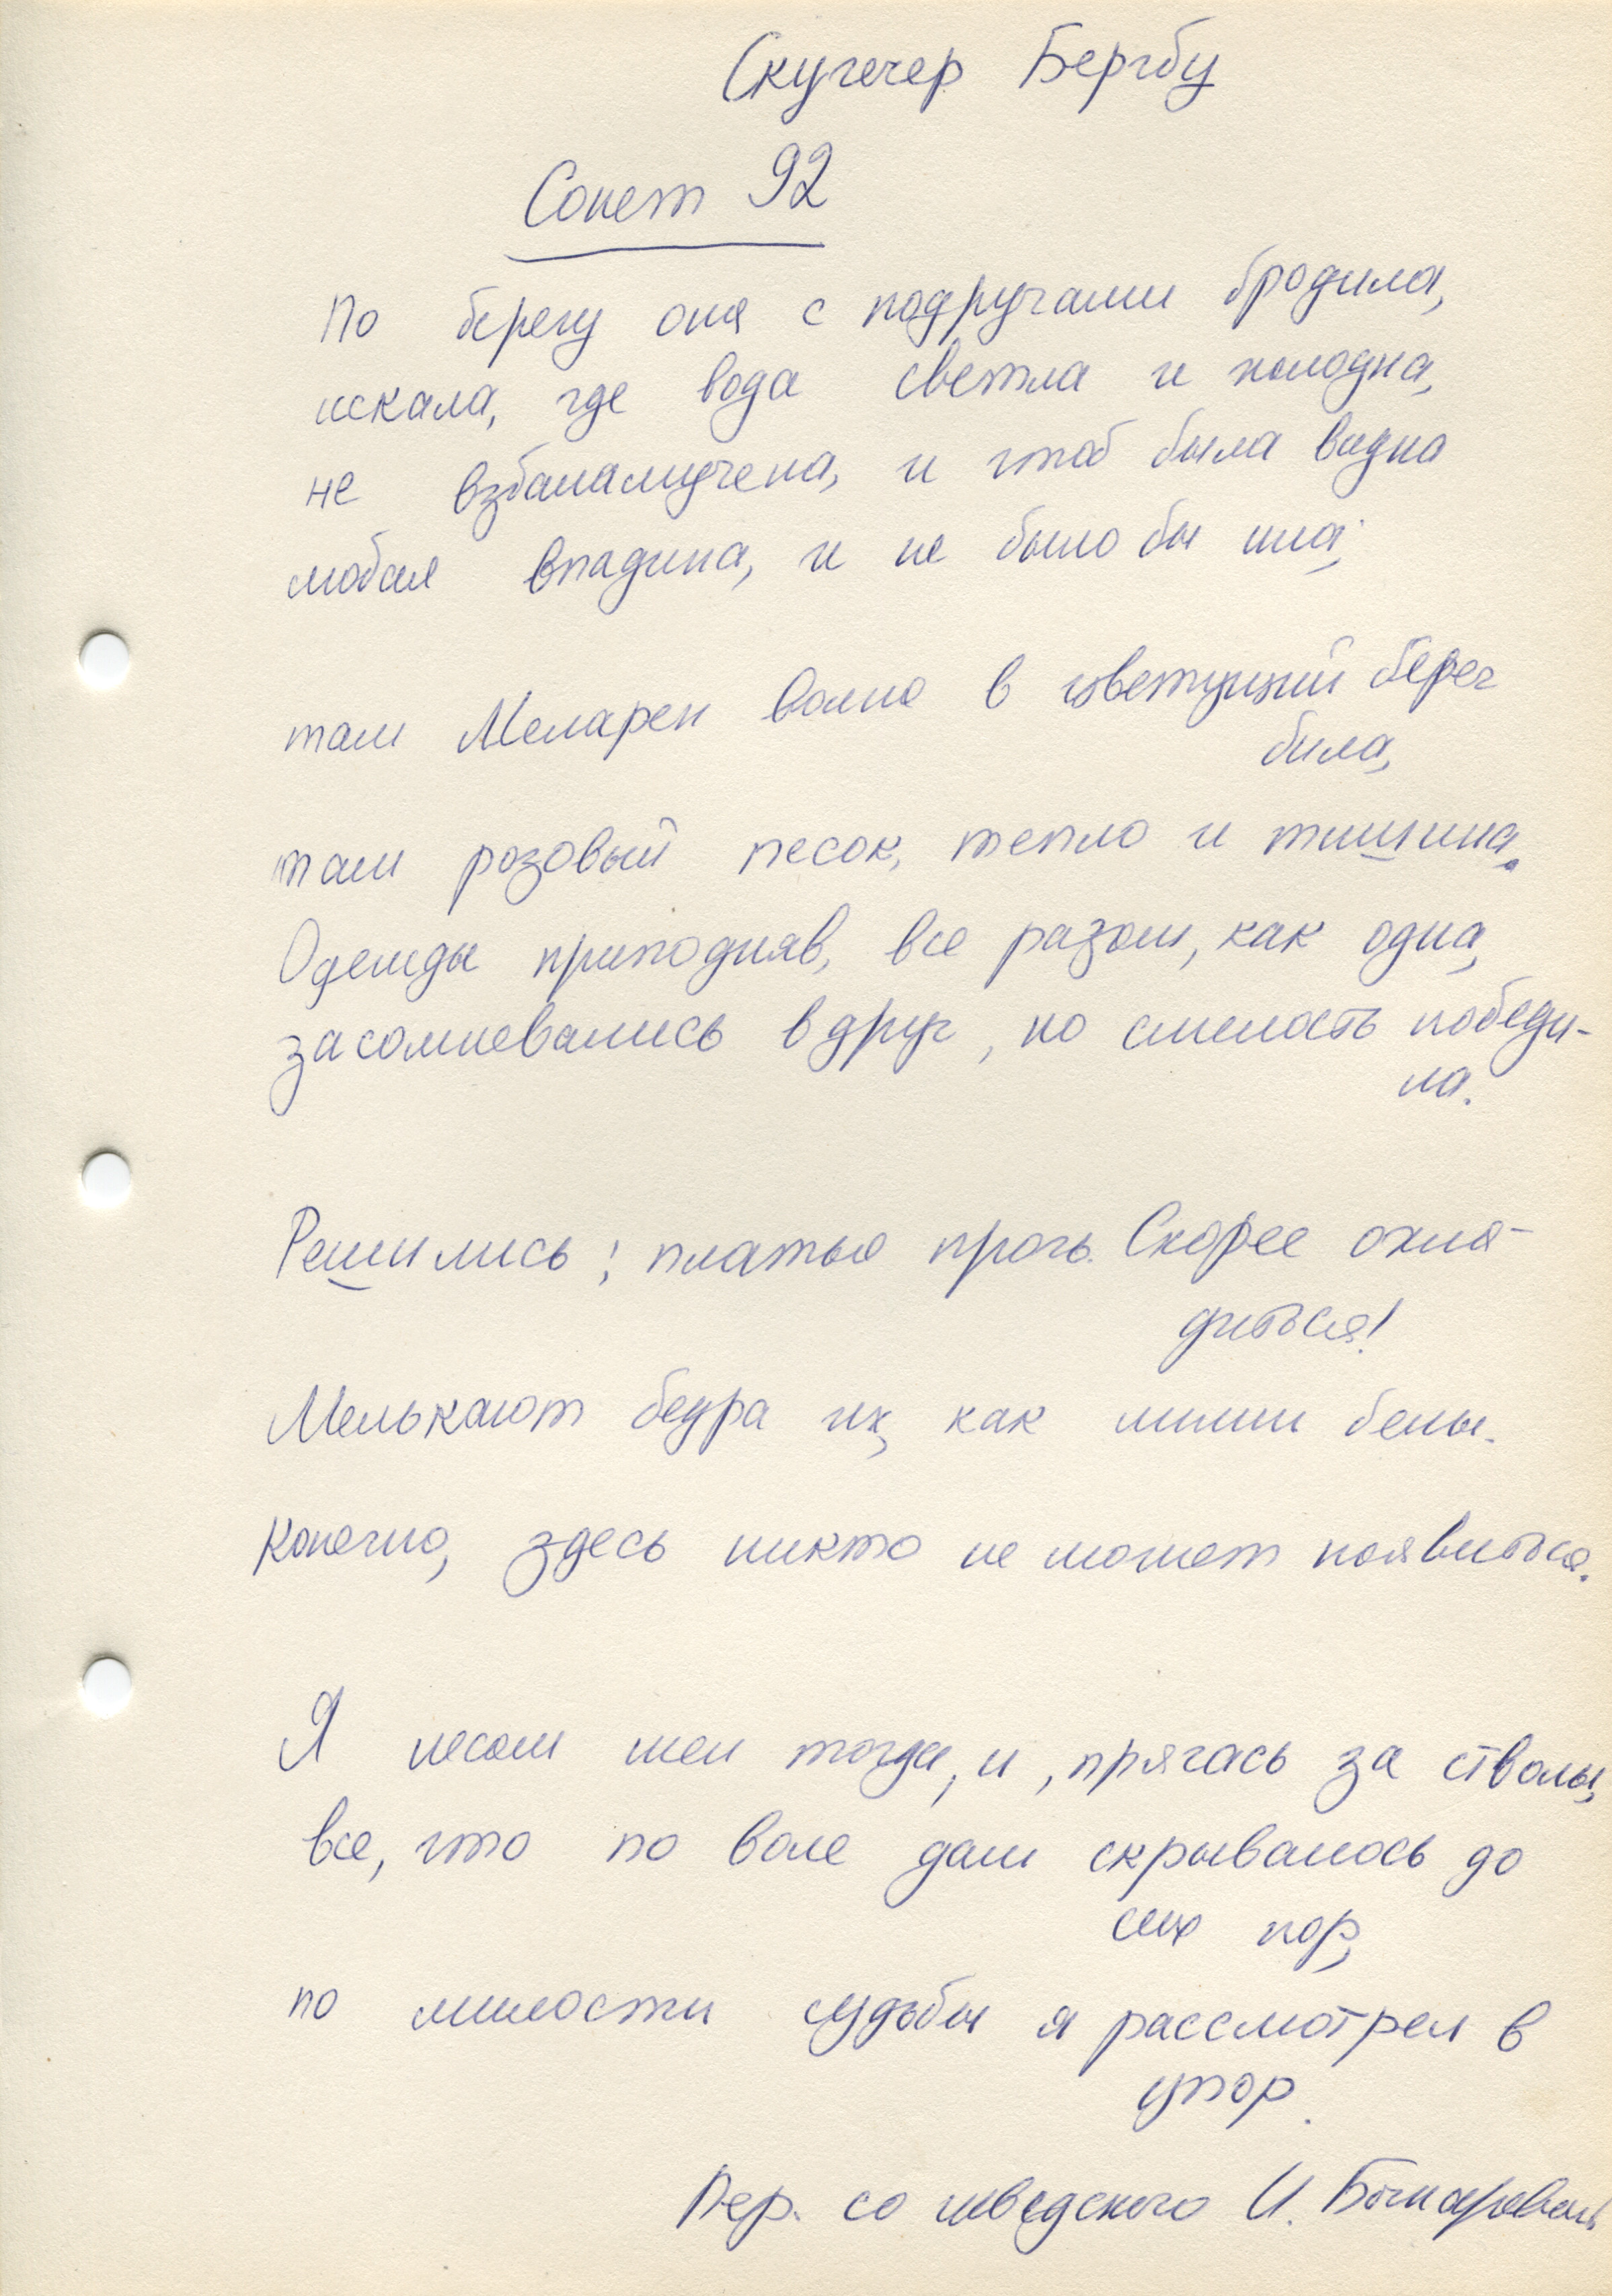 Скугечер Бергбу
Сонет 92
По берегу она с подругами бродила,
искала, где вода светла и холодна,
не взбаламучена, и чтоб была видна
любая впадина, и не было бы ила;
там Меларен волно в цветущий берег
била,
там розовый песок, тепло и тишина.
Одежды приподняв, все разом, как одна,
засомневались вдруг, но смелость победи-
ла.
Решились; платья прочь. Скорее охла-
диться!
Мелькают бедра их, как лилии белы.
Конечно, здесь никто не может появиться.
Я лесом шел тогда, и, прячась за стволы,
все, что по воле дам скрывалось до
сих пор,
по милости судьбы я рассмотрел в
упор.
Пер. со шведского И. Бочкаревой